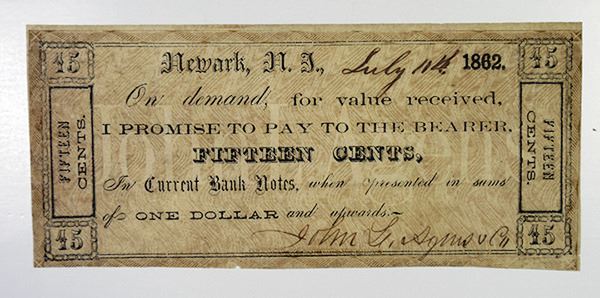 15 Newark, N. J., July 11th 1862. 15
On demand, for value received,
I PROMISE TO PAY TO THE BEARER,
FIFTEEN CENTS,
In Current Bank Notes, when presented in sums
of ONE DOLLAR and upwards.—
John G. & Co
FIFTEEN CENTS.
FIFTEEN CENTS.
15
15